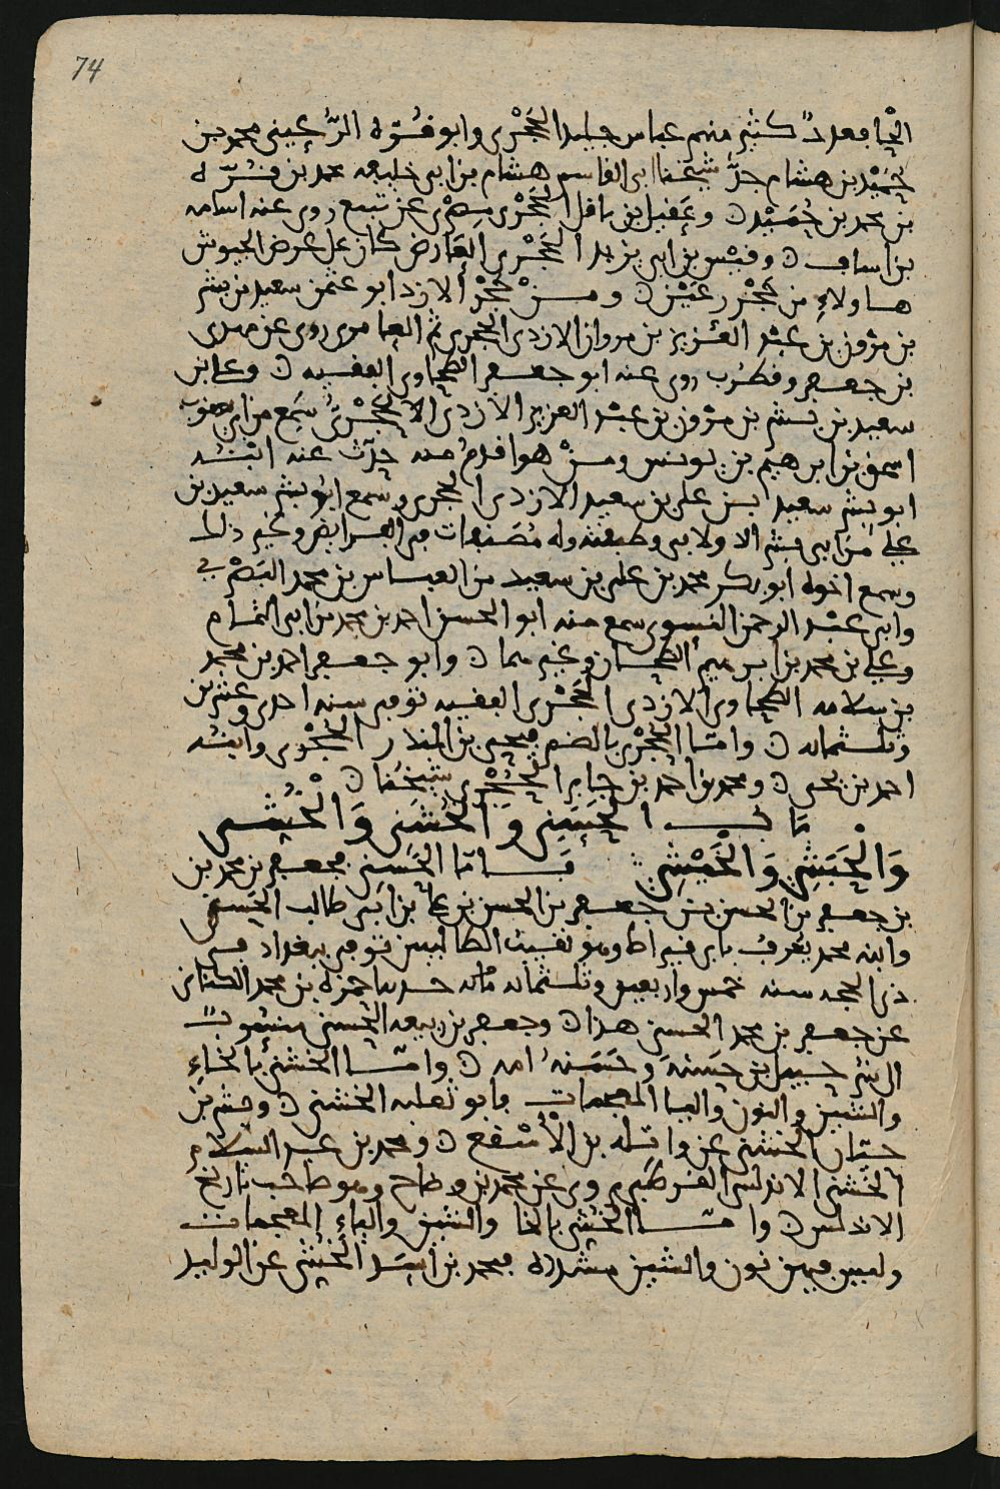 74
الحا فعدد كثير منهم عباس بن جليد الحَجْري وابو قُرّة الرُّعيني محمد بن
حُمَيْد بن هشام جدُّ شيخنا ابي القاسم هشام بن ابي خليفه محمد بن قُرّة
بن محمد بن حُمَيْد ٥ وعَقيل بن باقل الحَجْري مِصْري عن تبيع روى عنه اسامه
بن اساف ٥ وقيس بن ابي يزيد الحَجْري العارض كان على عرض الجيوش
هاولاءِ من حَجْر رعَيْن ٥ ومن حَجْر الازد ابو عثمن سعيد بن بشر
بن مرْون بن عبْد العَزيز بن مروان الازدي الحجري ثم العامري روى عن مهدي
بن جعفر وقطرب روى عنه ابو جعفر الطحاوي الفقيه ٥ وعلي بن
سعيد بن بشر بن مرْون بن عبْد العزيز الازدي الحَجْريّ سَمِع من ابي يعقوب
اسحق بن ابرهيم بن يونس ومنْ هو اقدمُ منه حدّث عنه ابْنُه
ابو بشر سعيد بن علي بن سعيد الازدي الحجري وسمع ابو بشر سعيد بن
علي من ابي بشر الدولابي وطبقته وله مُصَنفات في الفرايض وغير ذلك
وسمع اخوه ابو بكر محمد بن علي بن سعيد من العباس بن محمد البَصْري
وابي عبْد الرحمن النسوي سمع منه ابو الحسن احمد بن محمد بن ابي التمام
وعلي بن محمد بن ابرهيم الطحان وغيرهما ٥ وابو جعفر احمد بن محمد
بن سلامه الطحاوي الازدي الحَجْري الفقيه توفي سنه احدى وعشرين
وثلثمائه ٥ وامّا الحُجْري بالضم فيحيى بن المنذر الحُجْري وابنه
احمد بن يحيى ٥ ومحمد بن احمد بن جابر الحُجْري شيخنا ٥
بَاب الحَسَني وَالخُشَني وَالخُشّي
وَالْحَبَشِي وَالْخَيْشِي فامّا الحَسَني فجعفر بن محمد بن
بن جعفر بن الحسن بن جعفر بن الحسن بن علي بن ابي طالب الحَسني
وابنه محمد يُعرف بابي قيراط وهو نقيب الطالبيين توفي ببغداد في
ذي الحجه سنه خمس واربعين وثلثمائه حدثنا حمزه بن محمد الكناني
عن جعفر بن محمد الحسني هذا ٥ وجعفر بن ربيعه الحَسني منسُوبٌ
الى شرحبيل بن حَسَنه وحَسَنه امه ٥ وامّا الخشني بالخاءِ
والشين والنون واليا المعجمات فابو ثعلبه الخشني ٥ وبشر بن
حيّان الخشني عن واثله بن الاسْقع ٥ ومحمد بن عبد السلام
الخُشني الاندلسي القرطبي روى عن محمد بن وضاح وهو صاحب تاريخ
الاندلس ٥ وامّا الخُشّي بالخا والشين والياءِ المعجمات
وليس فيه نون والشين مشدده فمحمد بن اسَد الخُشّي عن الوليد